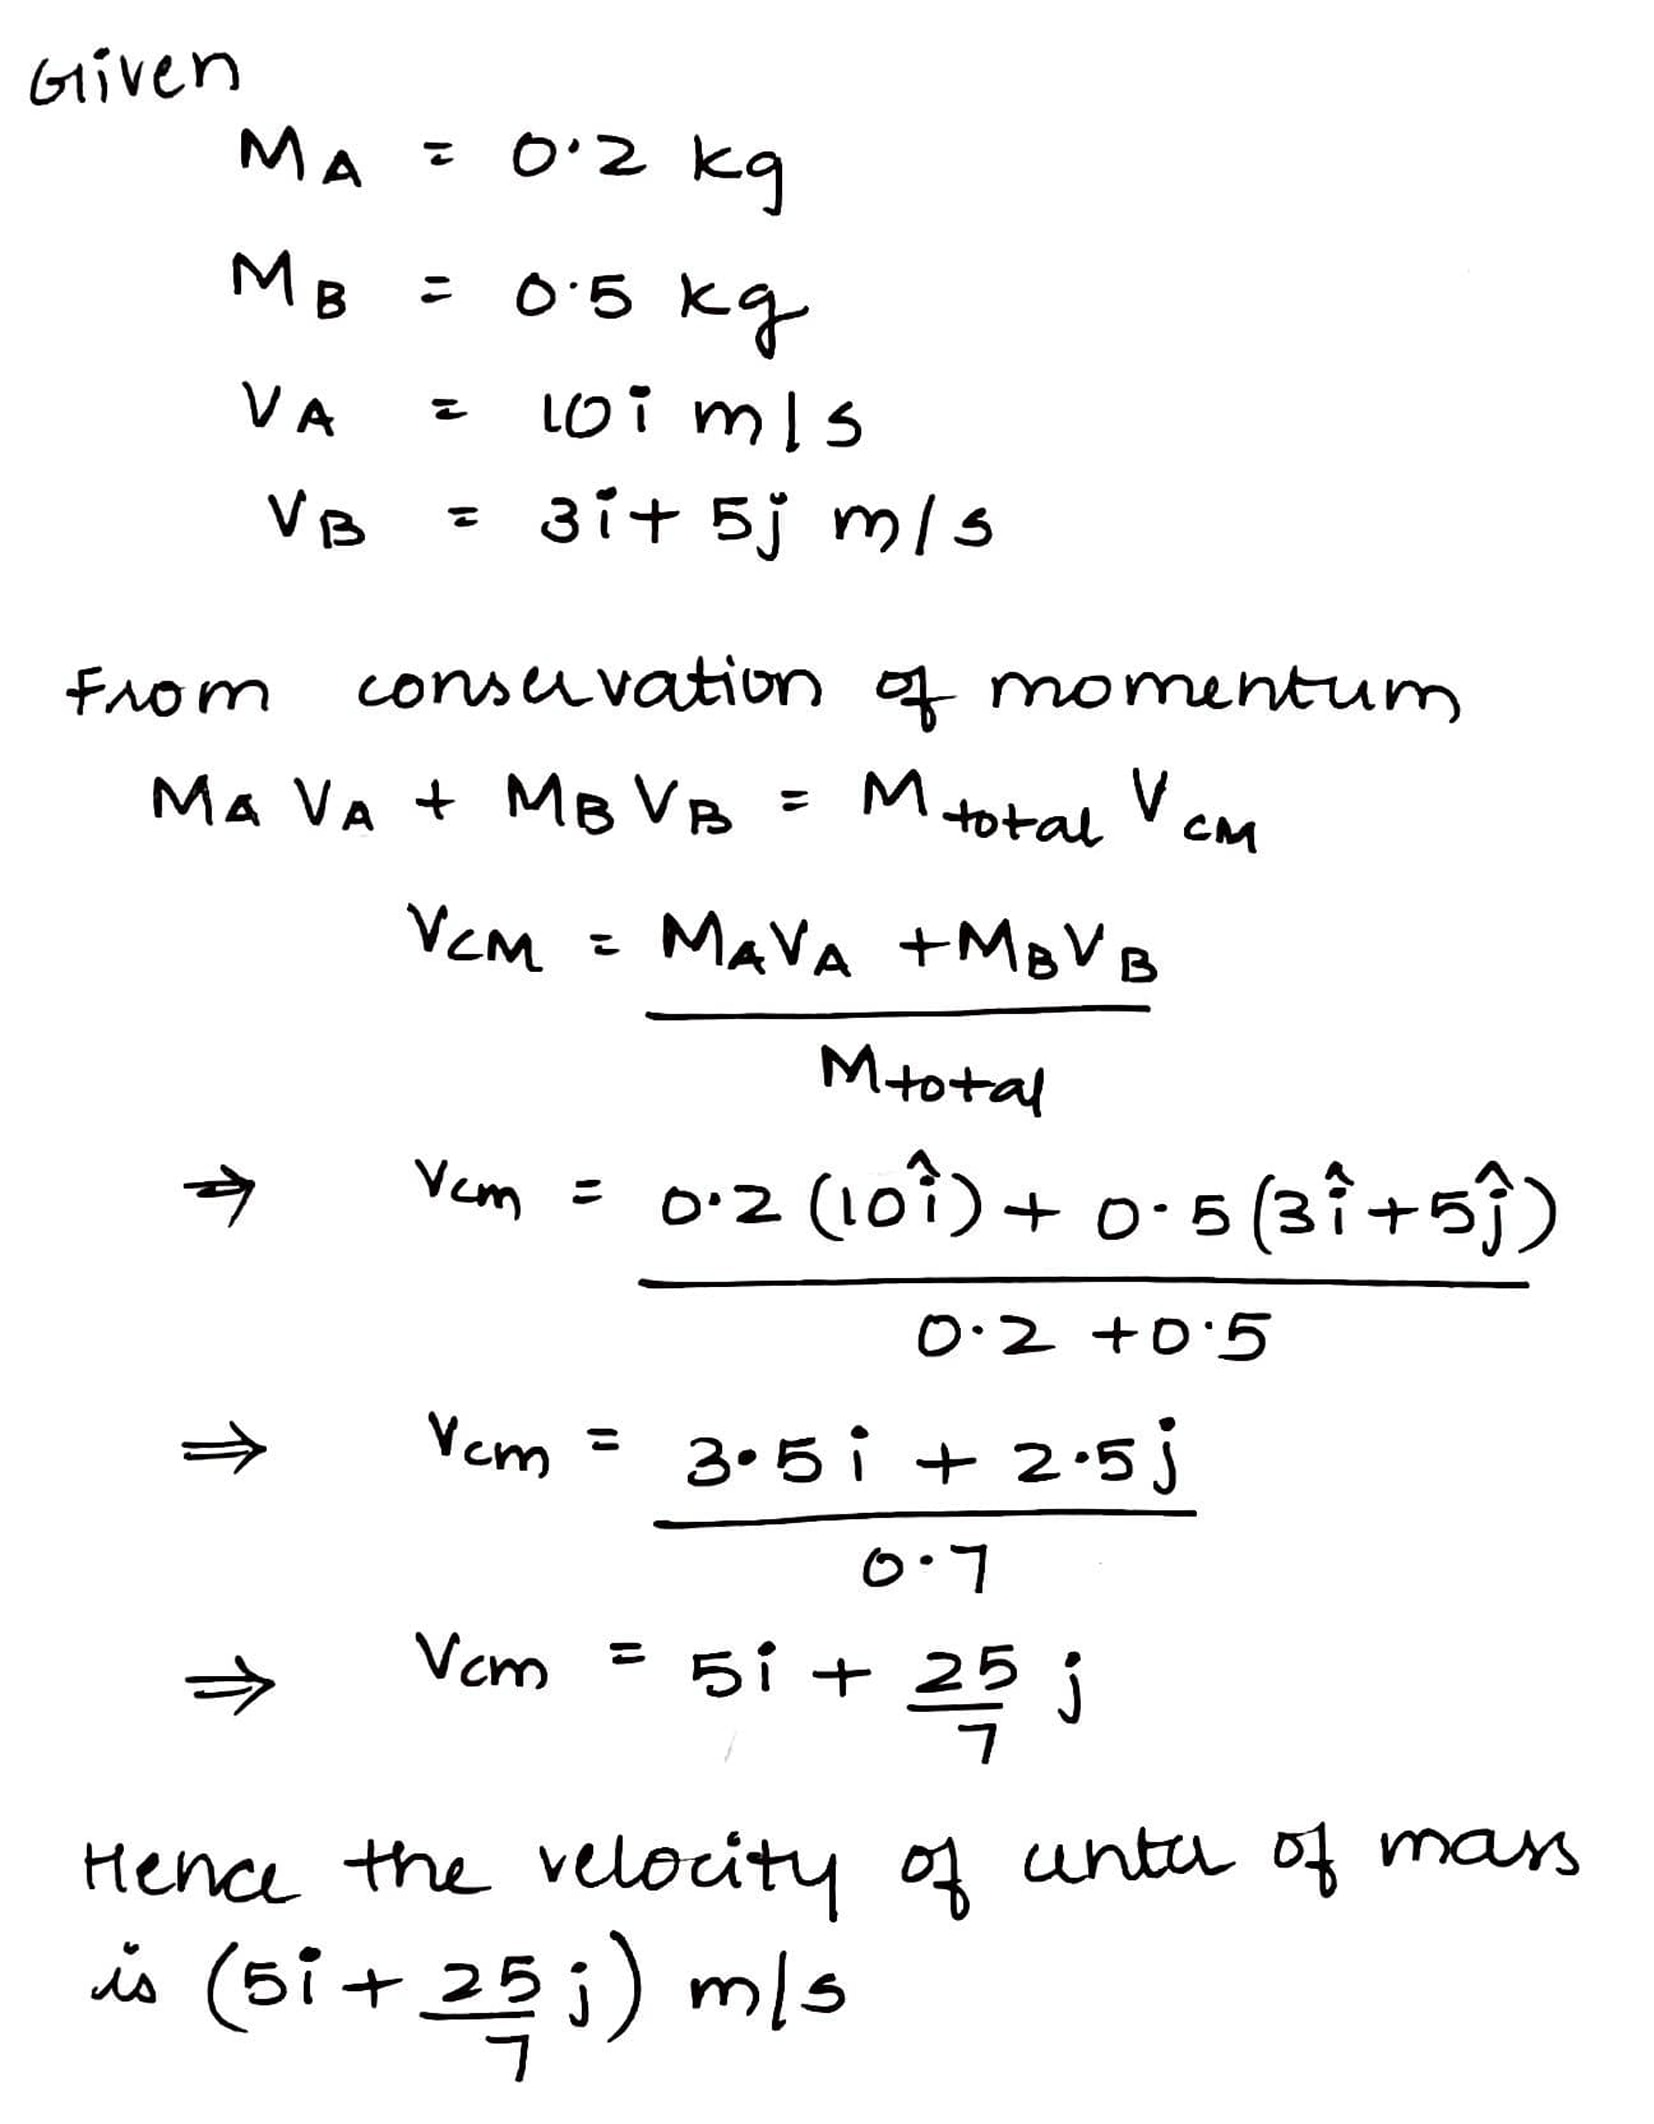 Given
MA = 0.2 kg
MB = 0.5 kg
VA = 10i m/s
VB = 3i + 5j m/s
From conservation of momentum
MA VA + MB VB = Mtotal VCM
VCM = MAVA + MBVB
Mtotal
⇒ Vcm = 0.2 (10î) + 0.5 (3î + 5ĵ)
0.2 + 0.5
⇒ Vcm = 3.5i + 2.5j
0.7
⇒ Vcm = 5i + 25/7 j
Hence the velocity of center of mass
is (5i + 25/7 j) m/s